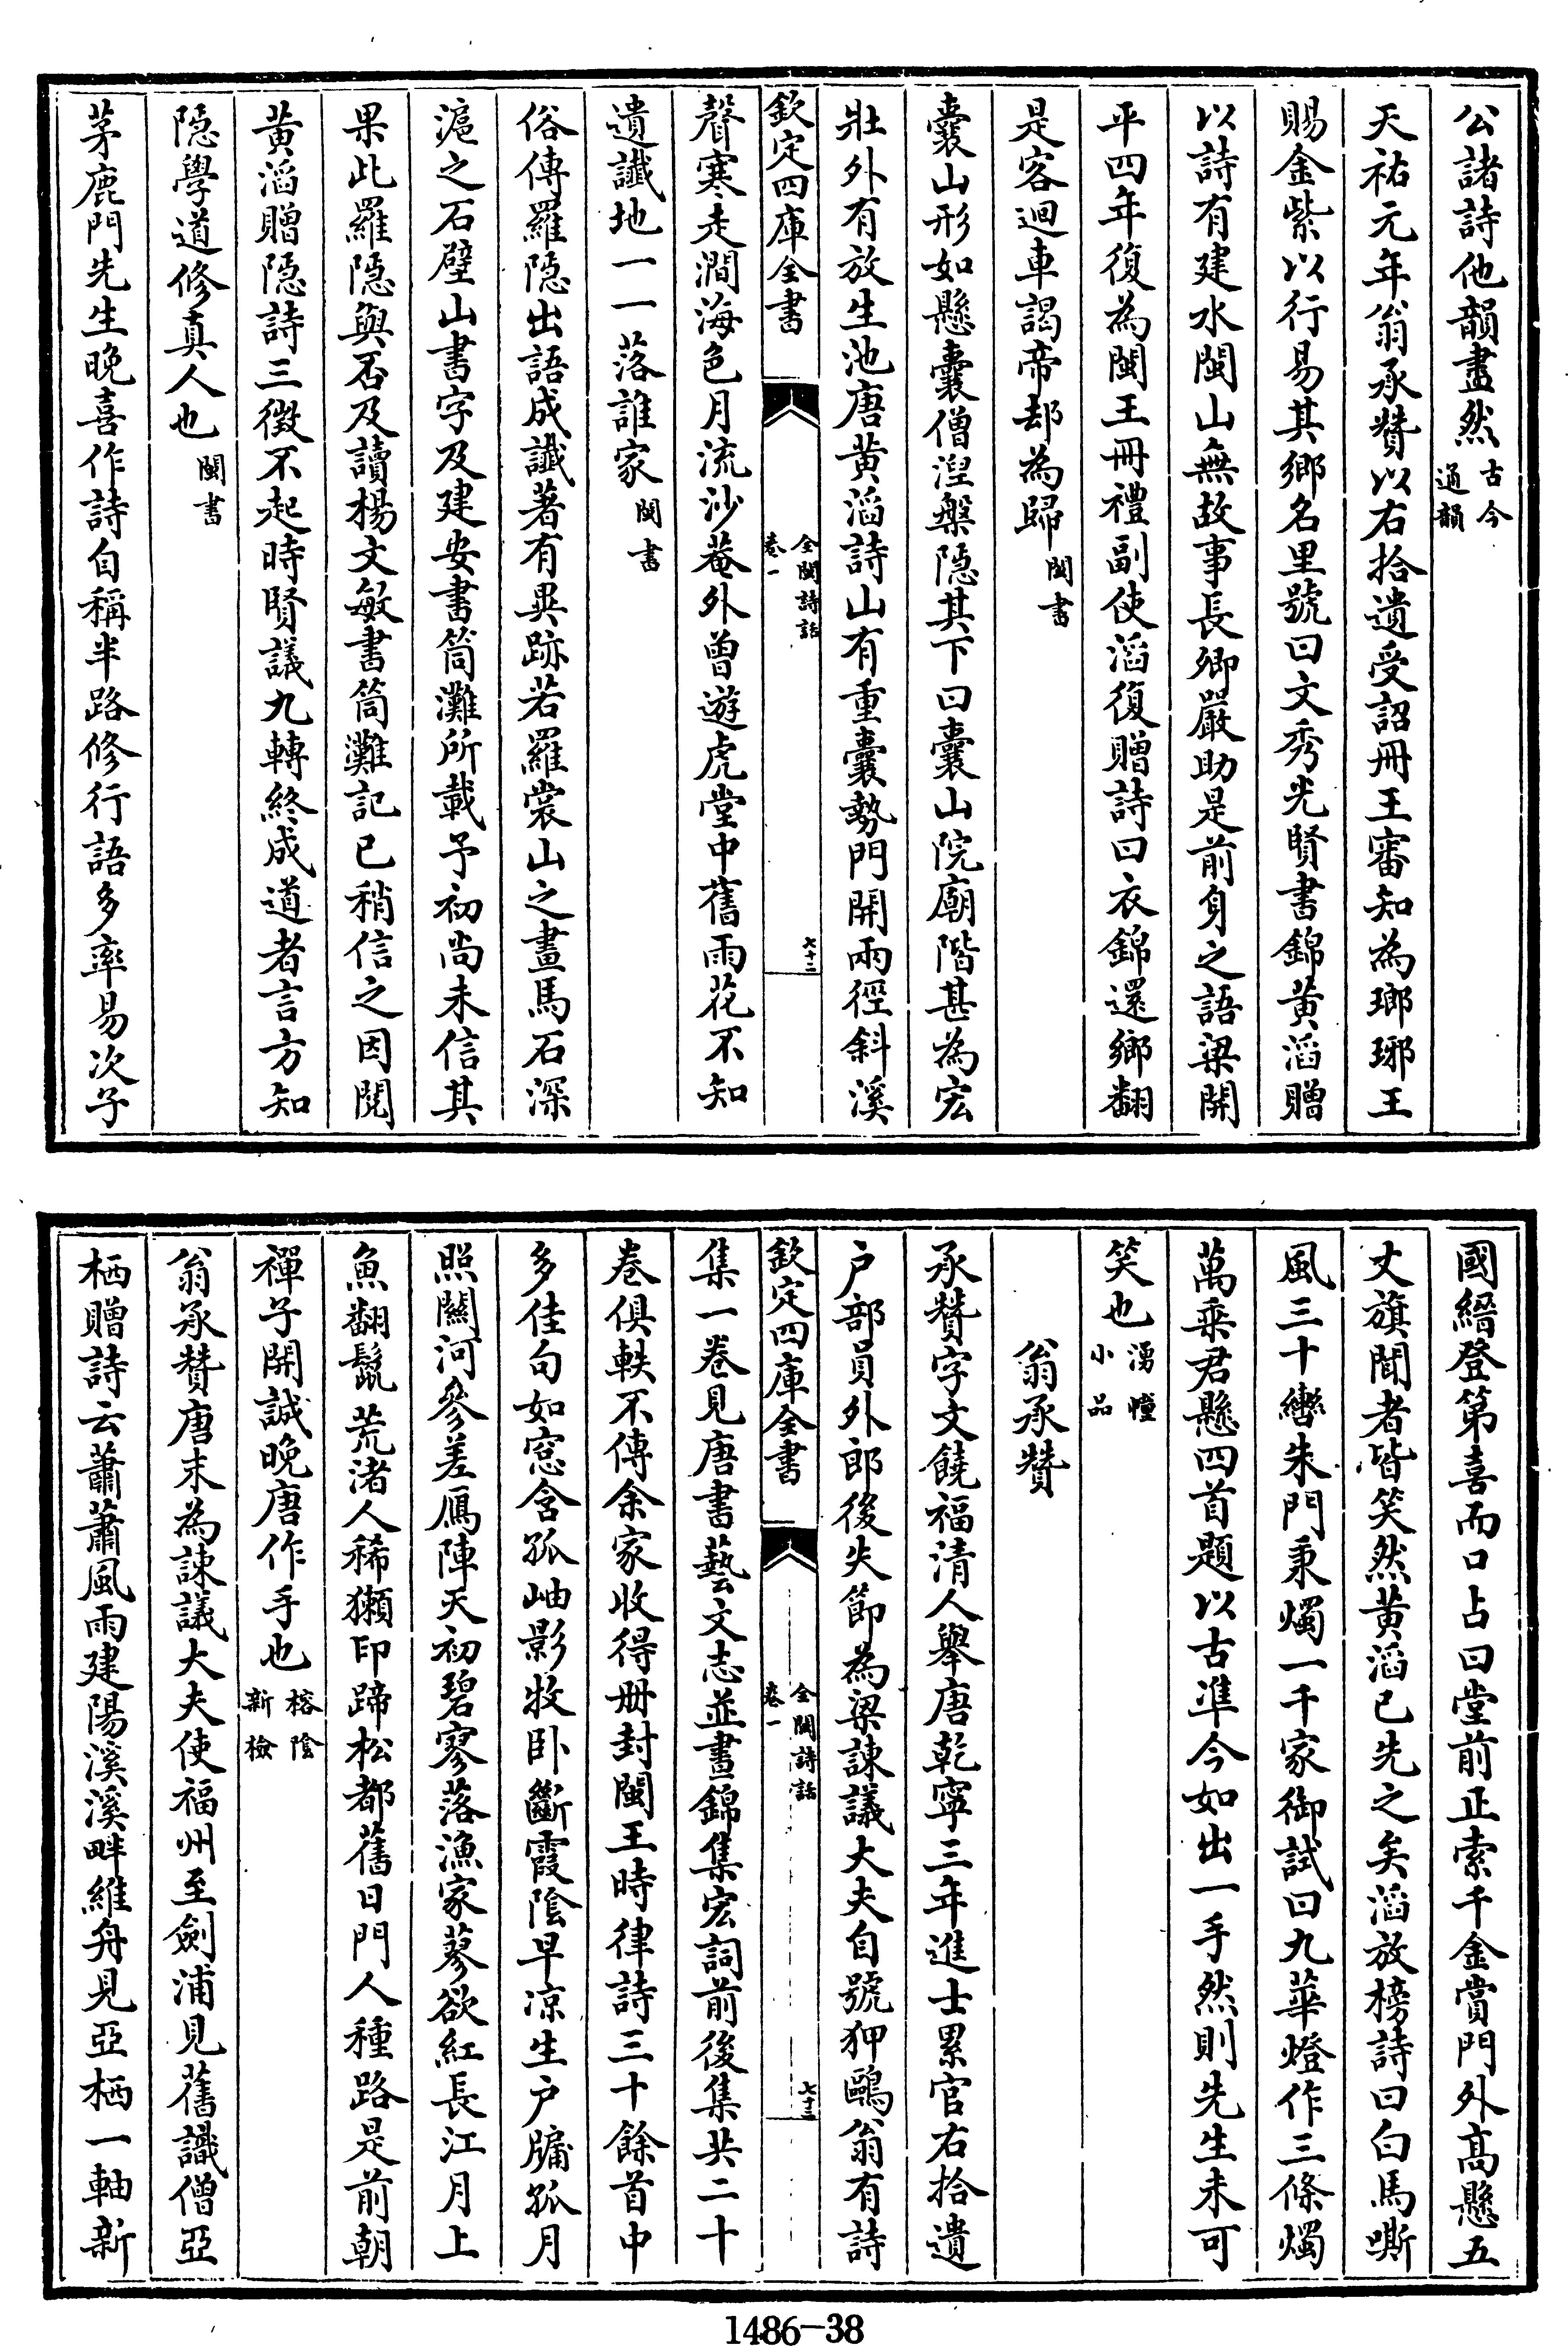 公諸詩他韻盡然古今通韻
天祐元年翁承贊以右拾遺受詔冊王審知為瑯琊王
賜金紫以行易其鄉名里號曰文秀光賢書錦黃滔贈
以詩有建水閩山無故事長卿嚴助是前身之語梁開
平四年復為閩王冊禮副使滔復贈詩曰衣錦還鄉翻
是客迴車謁帝却為歸閩書
囊山形如懸囊僧涅槃隱其下曰囊山院廟階甚為宏
壯外有放生池唐黃滔詩山有重囊勢門開兩徑斜溪
欽定四庫全書
全閩詩話
卷一
七十二
聲寒走澗海色月流沙菴外曾遊虎堂中舊雨花不知
遺讖地一一落誰家閩書
俗傳羅隱出語成讖著有異跡若羅裳山之畫馬石深
滬之石壁山書字及建安書筒灘所載予初尚未信其
果此羅隱與否及讀楊文敏書筒灘記已稍信之因閱
黃滔贈隱詩三徵不起時賢議九轉終成道者言方知
隱學道修真人也閩書
茅鹿門先生晚喜作詩自稱半路修行語多率易次子
國縉登第喜而口占曰堂前正索千金賞門外高懸五
丈旗聞者皆笑然黃滔已先之矣滔放榜詩曰白馬嘶
風三十轡朱門秉燭一千家御試曰九華燈作三條燭
萬乘君懸四首題以古準今如出一手然則先生未可
笑也湧幢小品
翁承贊
承贊字文饒福清人舉唐乾寧三年進士累官右拾遺
户部員外郎後失節為梁諫議大夫自號狎鷗翁有詩
欽定四庫全書
全閩詩話
卷一
七十三
集一卷見唐書藝文志並晝錦集宏詞前後集共二十
卷俱軼不傳余家收得冊封閩王時律詩三十餘首中
多佳句如窓含孤岫影牧卧斷霞陰早凉生户牖孤月
照關河參差鴈陣天初碧寥落漁家蓼欲紅長江月上
魚翻鬛荒渚人稀獺印蹄松都舊日門人種路是前朝
禪子開誠晚唐作手也榕陰新檢
翁承贊唐末為諫議大夫使福州至劍浦見舊識僧亞
栖贈詩云蕭蕭風雨建陽溪溪畔維舟見亞栖一軸新
1486-38